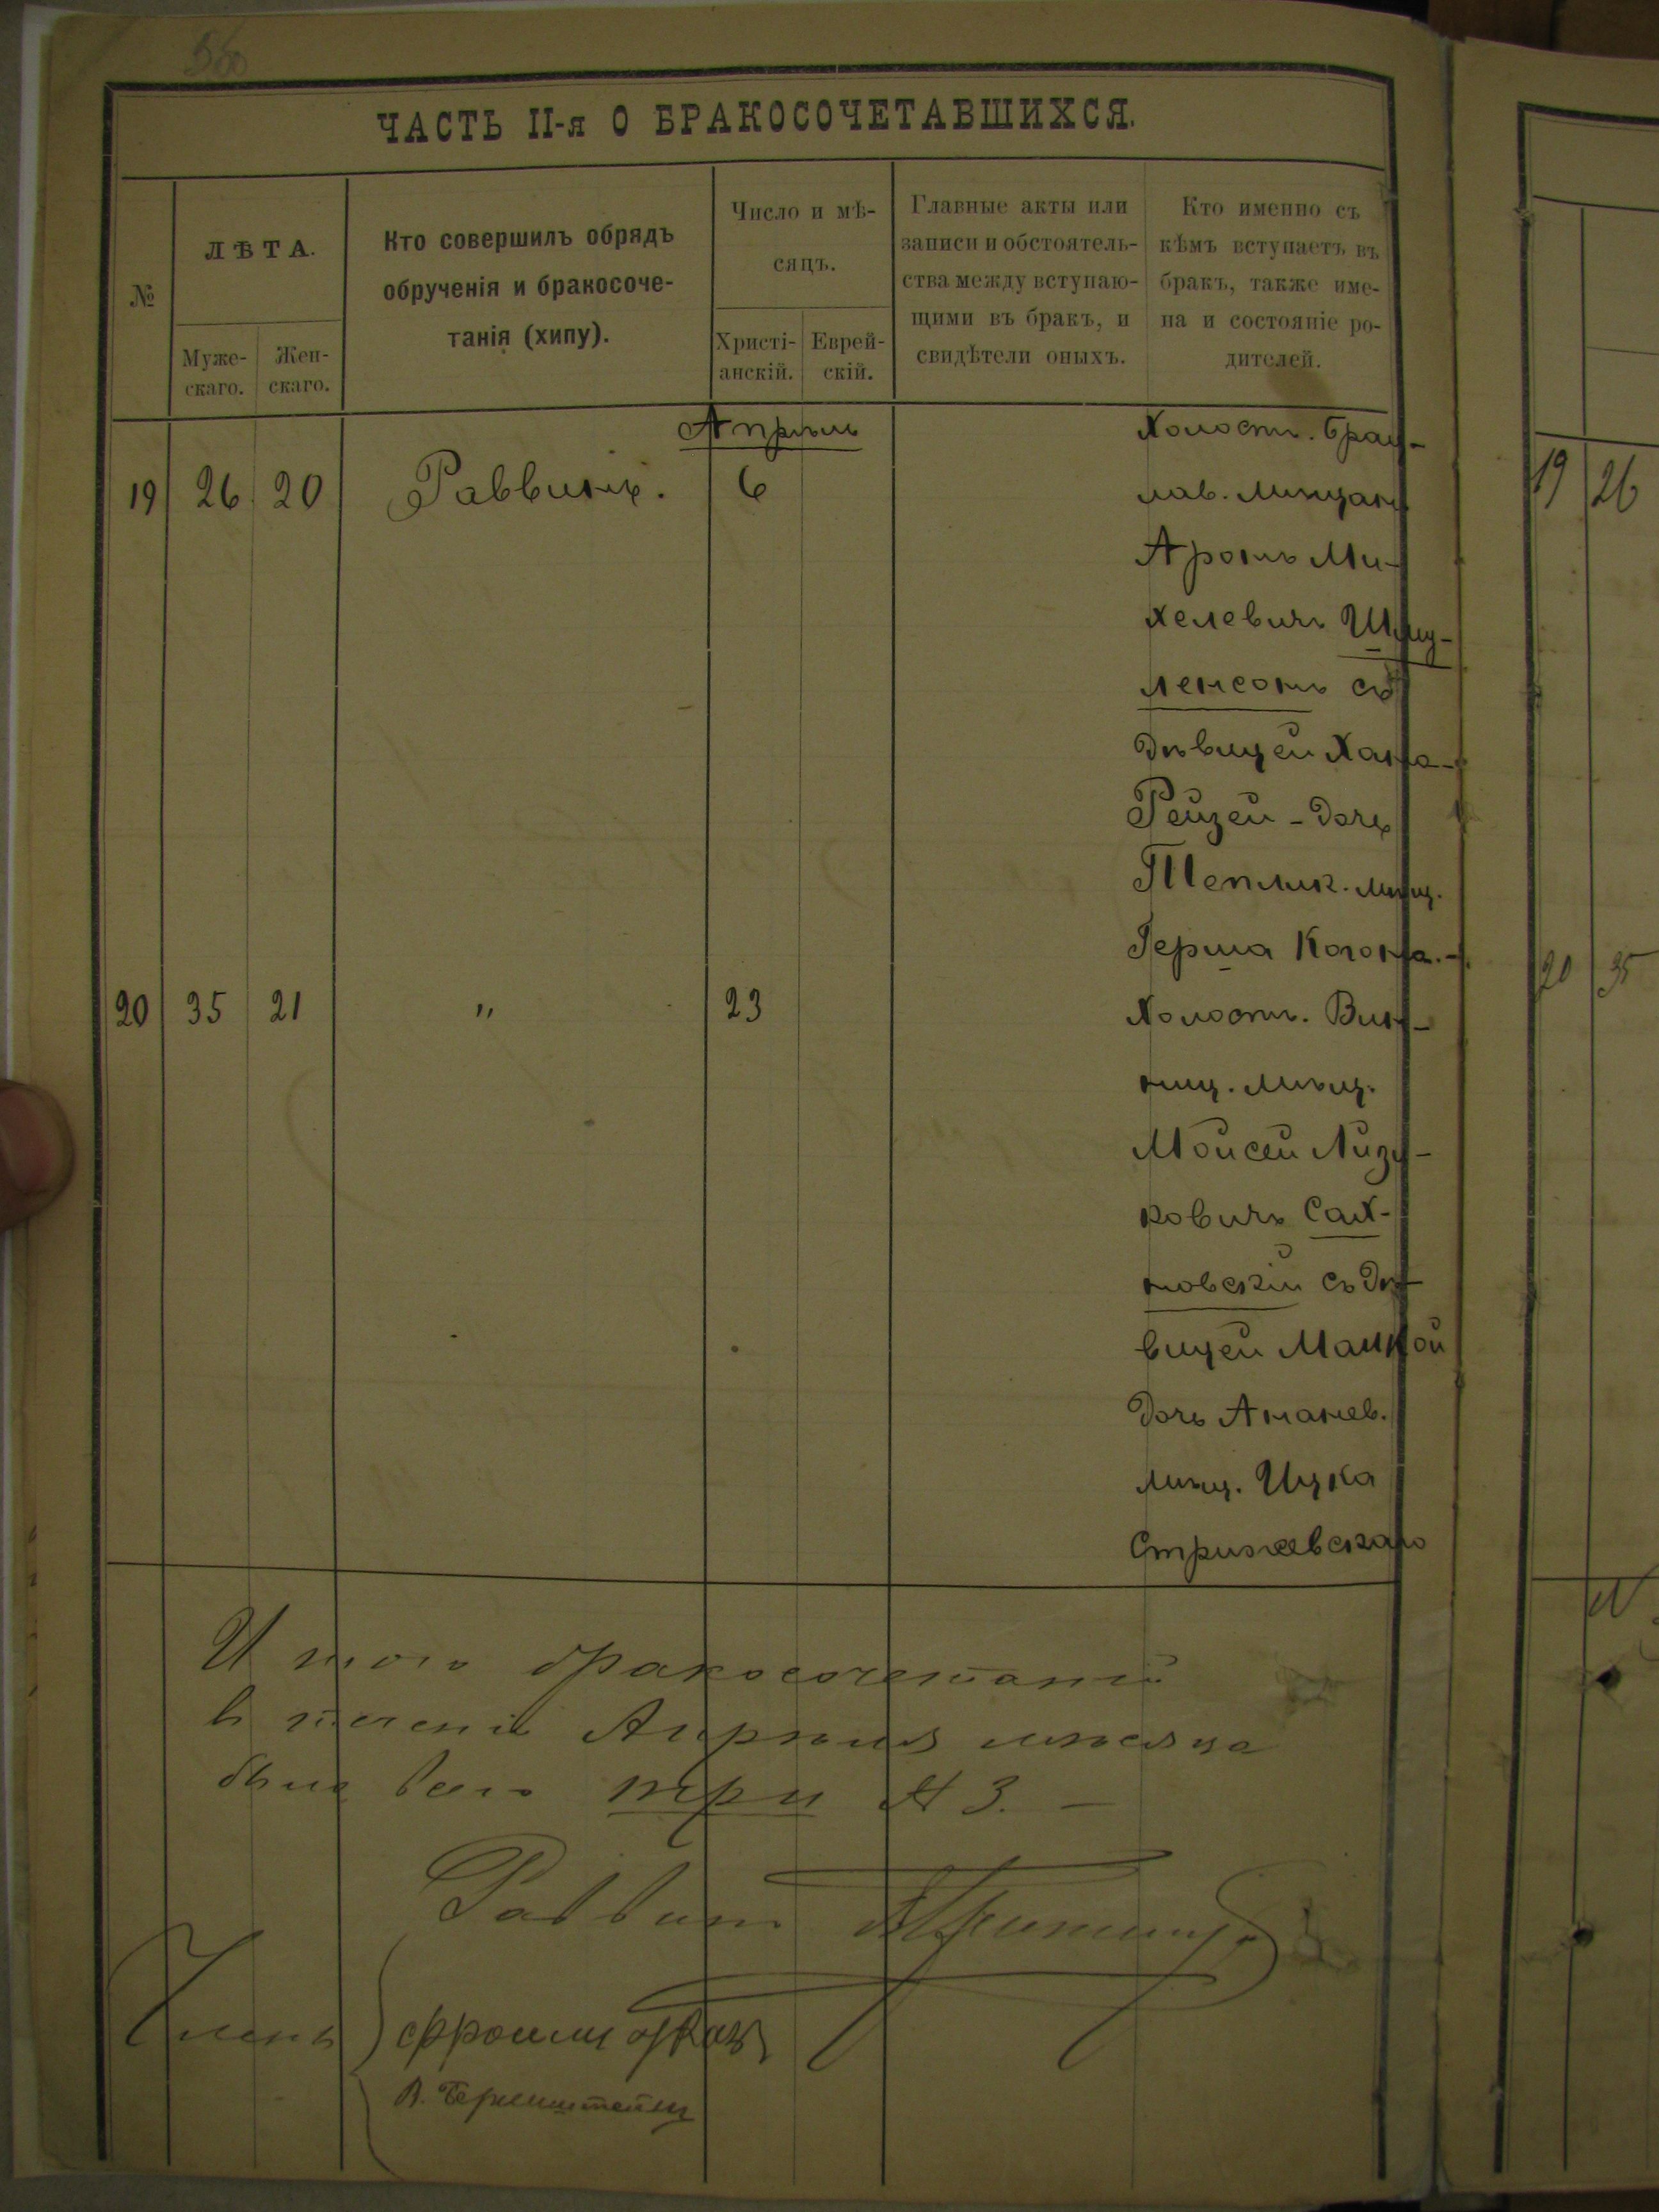 ЧАСТЬ II-я О БРАКОСОЧЕТАВШИХСЯ.
№
ЛѢТА.
Муже-
скаго.
Жен-
скаго.
Кто совершилъ обрядъ
обрученія и бракосоче-
танія (хипу).
Число и мѣ-
сяцъ.
Христі-
анскій.
Еврей-
скій.
Главные акты или
записи и обстоятель-
ства между вступаю-
щими въ бракъ, и
свидѣтели оныхъ.
Кто именно съ
кѣмъ вступаетъ въ
бракъ, также име-
на и состояніе ро-
дителей.
Апрѣль
19 26 20 Раввинъ. 6
Холост. Брац-
лав. мѣщан
Аронъ Ми-
хелевичъ Шму-
ленсонъ съ
дѣвицей Хана-
Рейзей - дочь
Теплик. мѣщ.
Герша Когона.-
20 35 21 " 23
Холост. Вин-
ниц. мѣщ.
Мойсей Айзи-
ковичъ Сах-
новскій съ дѣ-
вицей Манкой
дочь Ананьев.
мѣщ. Ицка
Стрижевскаго
Итого бракосочетаній
в теченіи Апрѣля мѣсяца
было всего три № 3. –
Раввин
Члены
В. Бернштейнъ
19 26
20 35